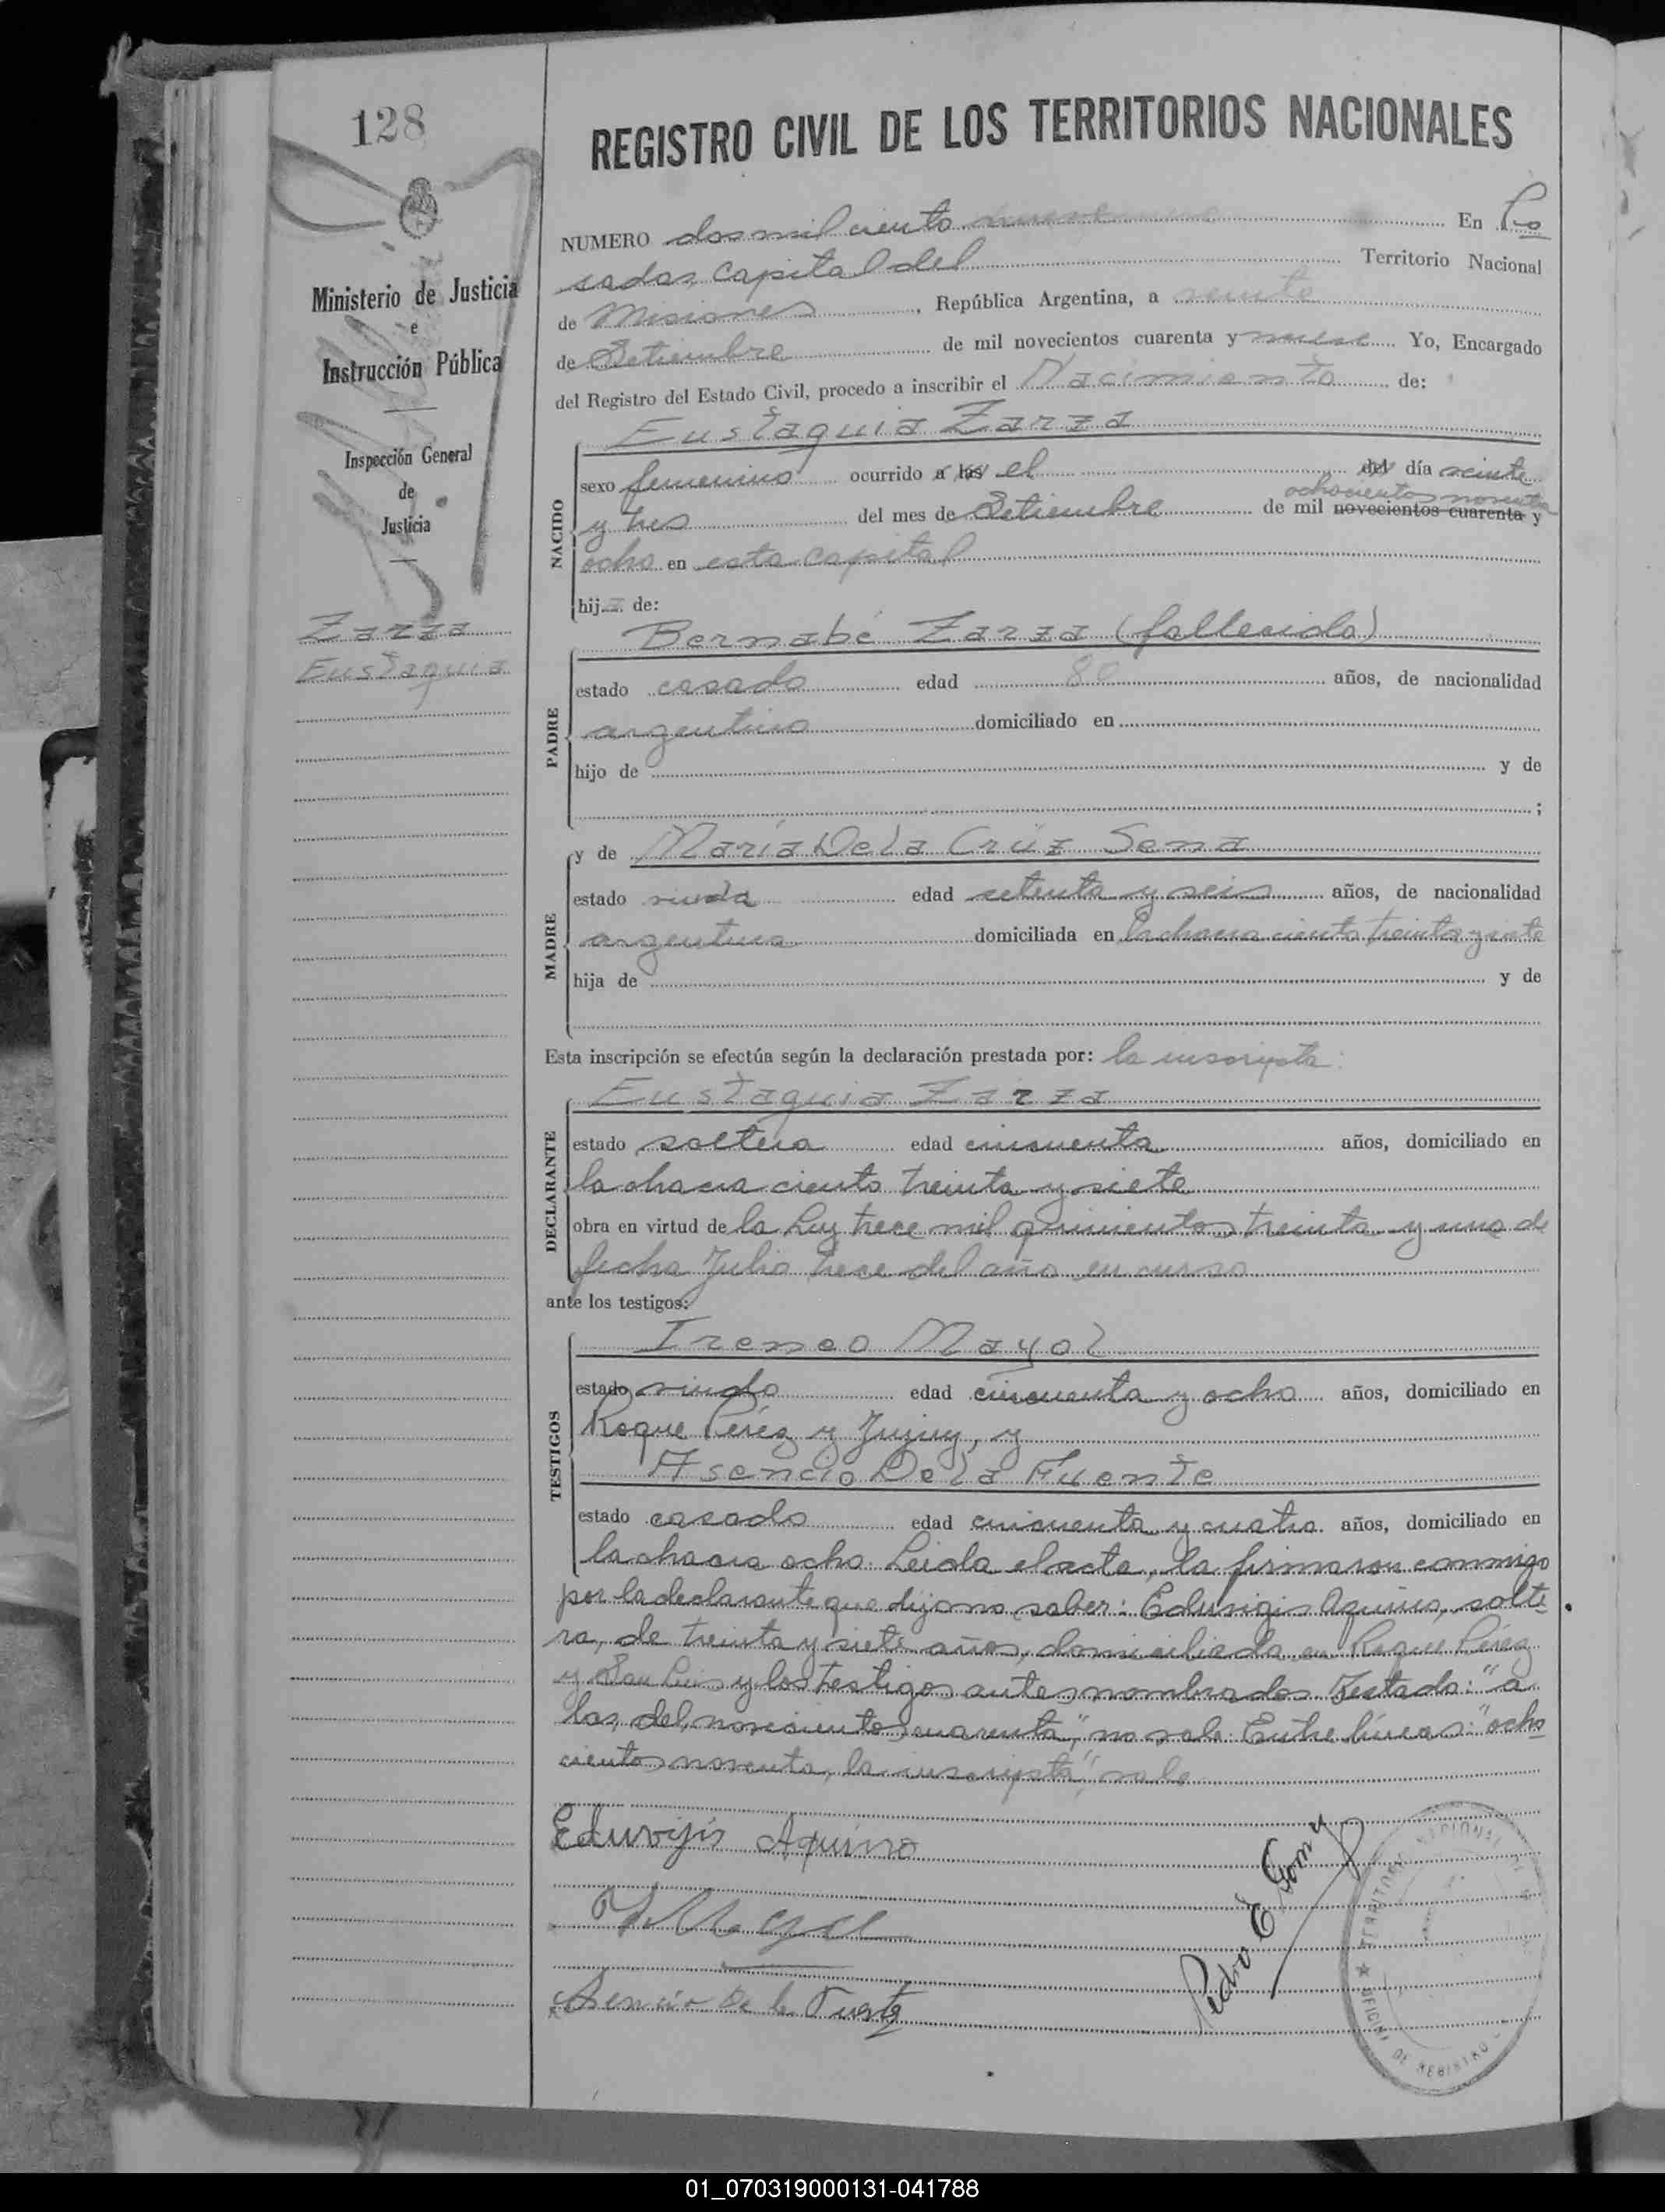 128
REGISTRO CIVIL DE LOS TERRITORIOS NACIONALES
Ministerio de Justicia
e
Instrucción Pública
Inspección General
de
Justicia
Zarza
Eustaquia
NUMERO dos mil ciento nueve En Po
sadas, capital del Territorio Nacional
de Misiones, República Argentina, a veinte
de Setiembre de mil novecientos cuarenta y nueve Yo, Encargado
del Registro del Estado Civil, procedo a inscribir el Nacimiento de:
Eustaquia Zarza
NACIDO
sexo femenino ocurrido a las el del día veinte
ochocientos noventa
y tres del mes de Setiembre de mil novecientos cuarenta y
ocho en esta capital
hija de:
PADRE
Bernabé Zarza (fallecido)
estado casado edad 80 años, de nacionalidad
argentino domiciliado en
hijo de y de
;
MADRE
y de María De la Cruz Sena
estado viuda edad setenta y seis años, de nacionalidad
argentina domiciliada en la chacra ciento treinta y siete
hija de y de
Esta inscripción se efectúa según la declaración prestada por: la inscripta:
DECLARANTE
Eustaquia Zarza
estado soltera edad cincuenta años, domiciliado en
la chacra ciento treinta y siete
obra en virtud de la Ley trece mil quinientos treinta y uno de
fecha Julio trece del año en curso
ante los testigos:
TESTIGOS
Ireneo Mayol
estado viudo edad cincuenta y ocho años, domiciliado en
Roque Pérez y Jujuy, y
Asencio De la Fuente
estado casado edad cincuenta y cuatro años, domiciliado en
la chacra ocho. Leida el acta, la firmaron conmigo
por la declarante que dijo no saber: Eduvigis Aquino, solte
ra, de treinta y siete años, domiciliada en Roque Pérez
y San Luis y los testigos antes nombrados. Testado: "a
las, del, novecientos cuarenta", no vale. Entre líneas: "ocho
cientos noventa, la inscripta", vale
Eduvijis Aquino
Asencio De la Fuente
Pedro E
TERRITORIO NACIONAL
OFICINA DE REGISTRO
01_070319000131-041788